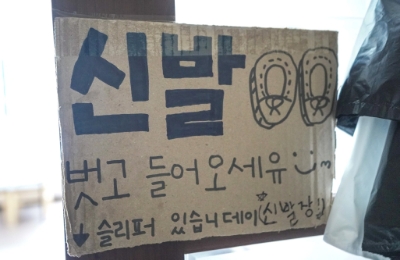 신발
벗고 들어오세유
↓ 슬리퍼 있습니데이 (신발장!)